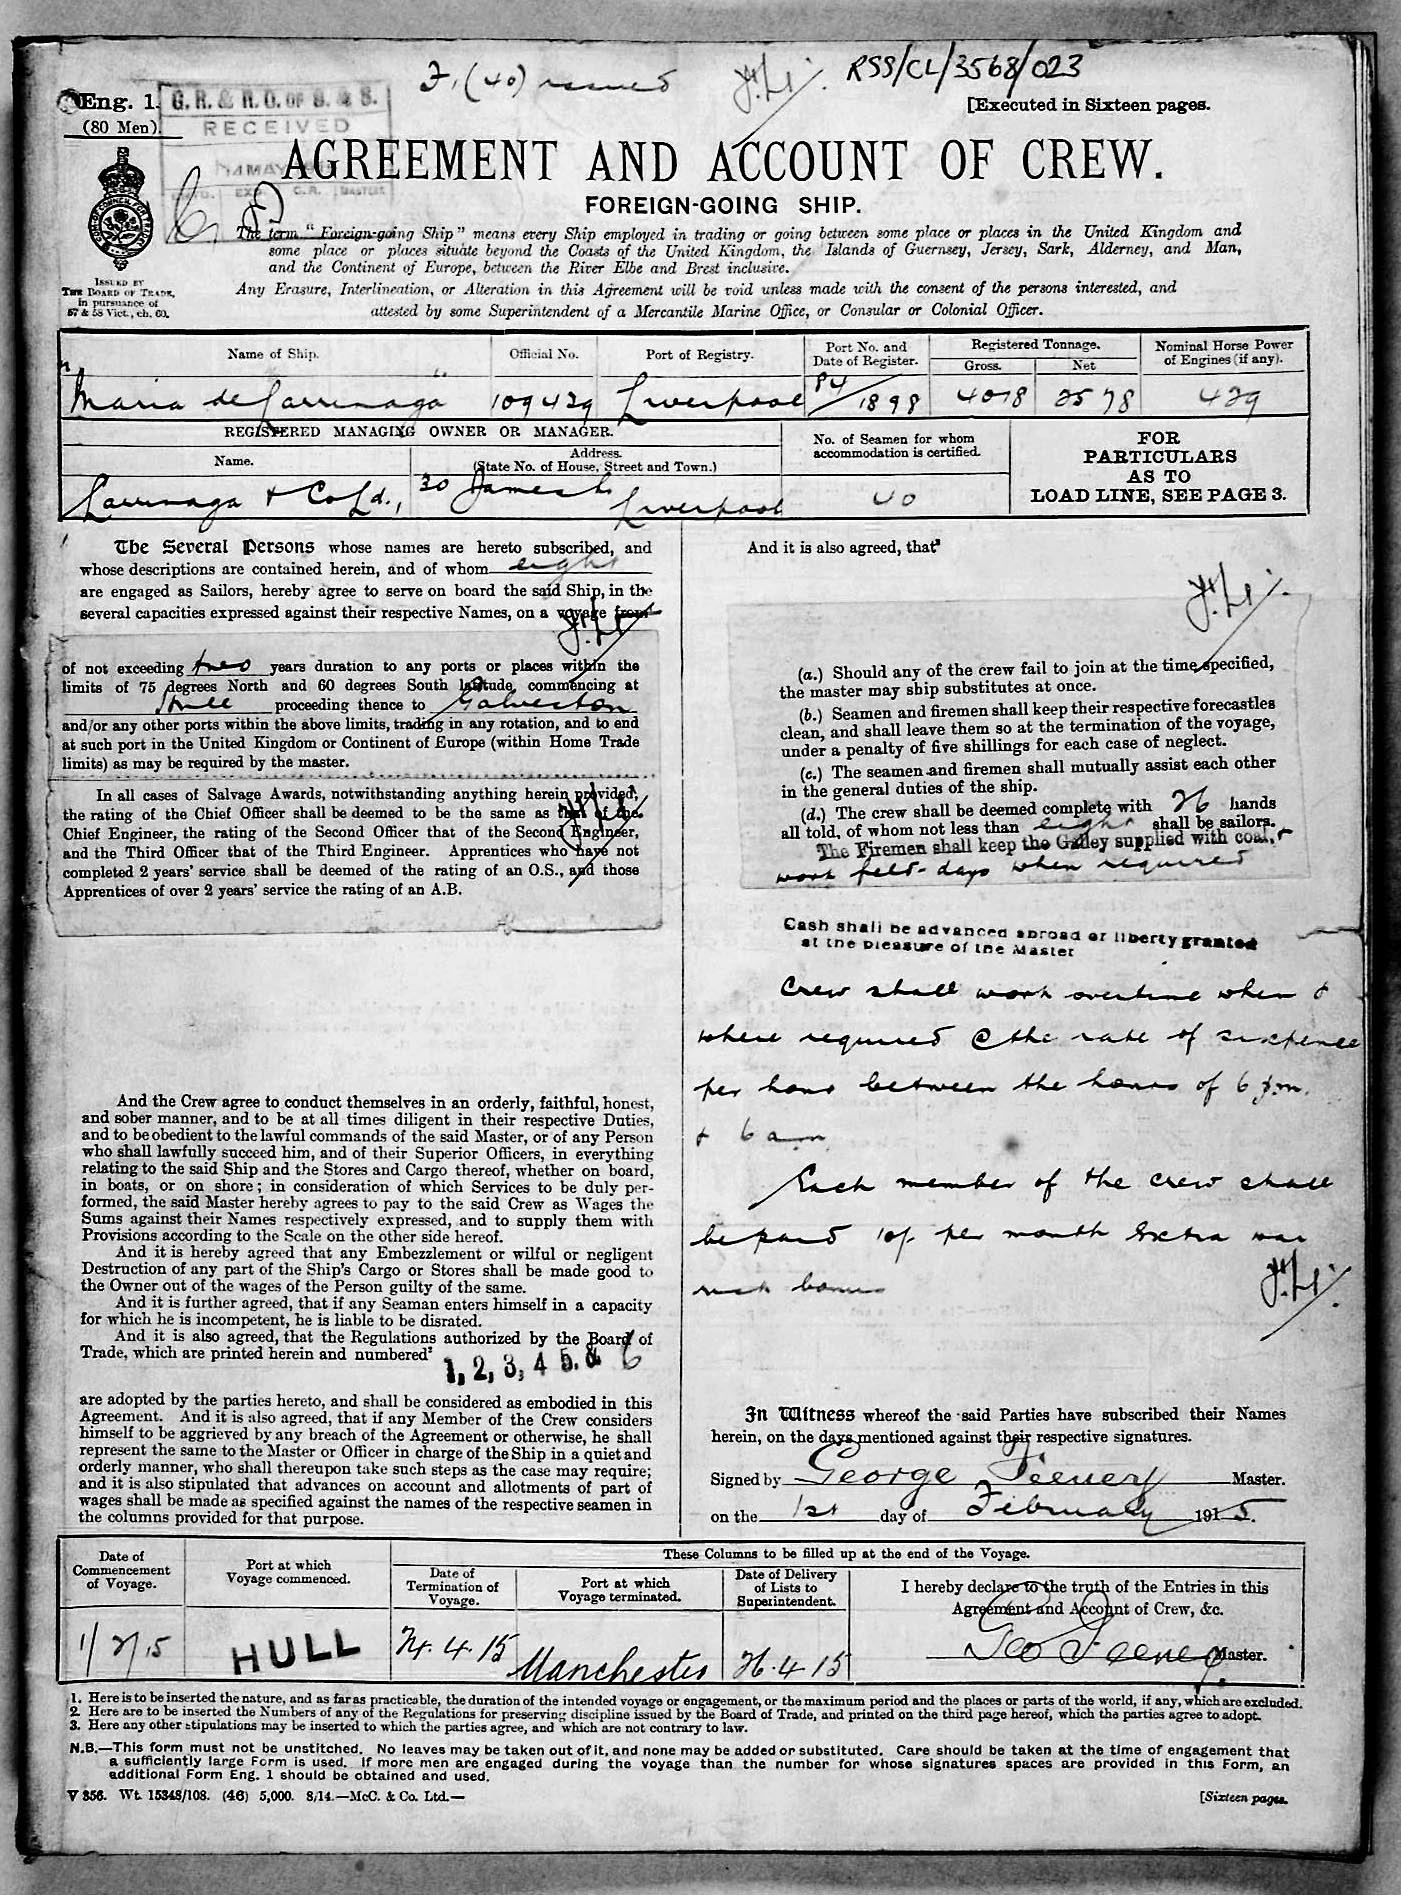 F. (40) issued
RSS/CL/3568/023
Eng. 1.
(80 Men).
G. R. & R. O. OF S. & S.
RECEIVED
MAY
[Executed in Sixteen pages.
AGREEMENT AND ACCOUNT OF CREW.
FOREIGN-GOING SHIP.
The term "Foreign-going Ship" means every Ship employed in trading or going between some place or places in the United Kingdom and
some place or places situate beyond the Coasts of the United Kingdom, the Islands of Guernsey, Jersey, Sark, Alderney, and Man,
and the Continent of Europe, between the River Elbe and Brest inclusive.
Any Erasure, Interlineation, or Alteration in this Agreement will be void unless made with the consent of the persons interested, and
attested by some Superintendent of a Mercantile Marine Office, or Consular or Colonial Officer.
ISSUED BY
THE BOARD OF TRADE,
in pursuance of
57 & 58 Vict., ch. 60.
Name of Ship.
Official No.
Port of Registry.
Port No. and
Date of Register.
Registered Tonnage.
Gross.
Net
Nominal Horse Power
of Engines (if any).
"Maria de Larrinaga" 109429 Liverpool 84/1898 4018 2578 429
REGISTERED MANAGING OWNER OR MANAGER.
Name.
Address.
(State No. of House, Street and Town.)
No. of Seamen for whom
accommodation is certified.
FOR
PARTICULARS
AS TO
LOAD LINE, SEE PAGE 3.
Larrinaga & Co Ld., 30 James St. Liverpool 40
The Several Persons whose names are hereto subscribed, and
whose descriptions are contained herein, and of whom eight
are engaged as Sailors, hereby agree to serve on board the said Ship, in the
several capacities expressed against their respective Names, on a voyage from
of not exceeding two years duration to any ports or places within the
limits of 75 degrees North and 60 degrees South latitude, commencing at
Hull proceeding thence to Galveston
and/or any other ports within the above limits, trading in any rotation, and to end
at such port in the United Kingdom or Continent of Europe (within Home Trade
limits) as may be required by the master.
In all cases of Salvage Awards, notwithstanding anything herein provided,
the rating of the Chief Officer shall be deemed to be the same as that of the
Chief Engineer, the rating of the Second Officer that of the Second Engineer,
and the Third Officer that of the Third Engineer. Apprentices who have not
completed 2 years' service shall be deemed of the rating of an O.S., and those
Apprentices of over 2 years' service the rating of an A.B.
And the Crew agree to conduct themselves in an orderly, faithful, honest,
and sober manner, and to be at all times diligent in their respective Duties,
and to be obedient to the lawful commands of the said Master, or of any Person
who shall lawfully succeed him, and of their Superior Officers, in everything
relating to the said Ship and the Stores and Cargo thereof, whether on board,
in boats, or on shore; in consideration of which Services to be duly per-
formed, the said Master hereby agrees to pay to the said Crew as Wages the
Sums against their Names respectively expressed, and to supply them with
Provisions according to the Scale on the other side hereof.
And it is hereby agreed that any Embezzlement or wilful or negligent
Destruction of any part of the Ship's Cargo or Stores shall be made good to
the Owner out of the wages of the Person guilty of the same.
And it is further agreed, that if any Seaman enters himself in a capacity
for which he is incompetent, he is liable to be disrated.
And it is also agreed, that the Regulations authorized by the Board of
Trade, which are printed herein and numbered²
1, 2, 3, 4 5. & 6
are adopted by the parties hereto, and shall be considered as embodied in this
Agreement. And it is also agreed, that if any Member of the Crew considers
himself to be aggrieved by any breach of the Agreement or otherwise, he shall
represent the same to the Master or Officer in charge of the Ship in a quiet and
orderly manner, who shall thereupon take such steps as the case may require;
and it is also stipulated that advances on account and allotments of part of
wages shall be made as specified against the names of the respective seamen in
the columns provided for that purpose.
And it is also agreed, that³
(a.) Should any of the crew fail to join at the time specified,
the master may ship substitutes at once.
(b.) Seamen and firemen shall keep their respective forecastles
clean, and shall leave them so at the termination of the voyage,
under a penalty of five shillings for each case of neglect.
(c.) The seamen and firemen shall mutually assist each other
in the general duties of the ship.
(d.) The crew shall be deemed complete with 26 hands
all told, of whom not less than eight shall be sailors.
The Firemen shall keep the Galley supplied with coal, &
work field-days when required
Cash shall be advanced abroad or liberty granted
at the pleasure of the Master
Crew shall work overtime when &
where required @ the rate of sixpence
per hour between the hours of 6 p.m.
& 6 am
Each member of the crew shall
be paid 10/- per month extra war
risk bonus
In Witness whereof the said Parties have subscribed their Names
herein, on the days mentioned against their respective signatures.
Signed by George Feeney Master.
on the 1st day of February 1915.
Date of
Commencement
of Voyage.
Port at which
Voyage commenced.
These Columns to be filled up at the end of the Voyage.
Date of
Termination of
Voyage.
Port at which
Voyage terminated.
Date of Delivery
of Lists to
Superintendent.
I hereby declare to the truth of the Entries in this
Agreement and Account of Crew, &c.
1/2/15 HULL 24.4.15 Manchester 26.4.15 Geo Feeney Master.
1. Here is to be inserted the nature, and as far as practicable, the duration of the intended voyage or engagement, or the maximum period and the places or parts of the world, if any, which are excluded.
2. Here are to be inserted the Numbers of any of the Regulations for preserving discipline issued by the Board of Trade, and printed on the third page hereof, which the parties agree to adopt.
3. Here any other stipulations may be inserted to which the parties agree, and which are not contrary to law.
N.B.—This form must not be unstitched. No leaves may be taken out of it, and none may be added or substituted. Care should be taken at the time of engagement that
a sufficiently large Form is used. If more men are engaged during the voyage than the number for whose signatures spaces are provided in this Form, an
additional Form Eng. 1 should be obtained and used.
V 356. Wt. 15348/108. (46) 5,000. 8/14.—McC. & Co. Ltd.—
[Sixteen pages.